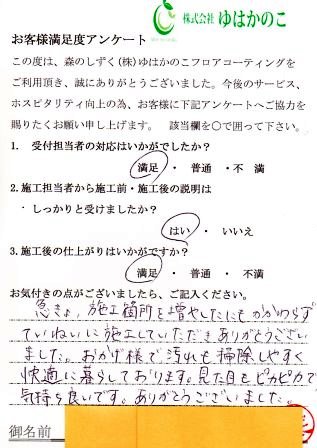 株式会社 ゆはかのこ
お客様満足度アンケート
この度は、森のしずく(株)ゆはかのこフロアコーティングを
ご利用頂き、誠にありがとうございました。今後のサービス、
ホスピタリティ向上の為、お客様に下記アンケートへご協力を
賜りたくお願い申し上げます。 該当欄を〇で囲って下さい。
1. 受付担当者の対応はいかがでしたか?
満足 ・ 普通 ・不 満
2.施工担当者から施工前・施工後の説明は
しっかりと受けましたか?
はい ・ いいえ
3.施工後の仕上がりはいかがですか?
満足 ・ 普通 ・ 不 満
お気付きの点がございましたら、ご記入ください。
急きょ、施工箇所を増やしたにもかかわらず
ていねいに施工していただきありがとうござい
ました。おかげ様で汚れも掃除しやすく
快適に暮らしております。見た目もピカピカで
気持ち良いです。ありがとうございました。
御名前